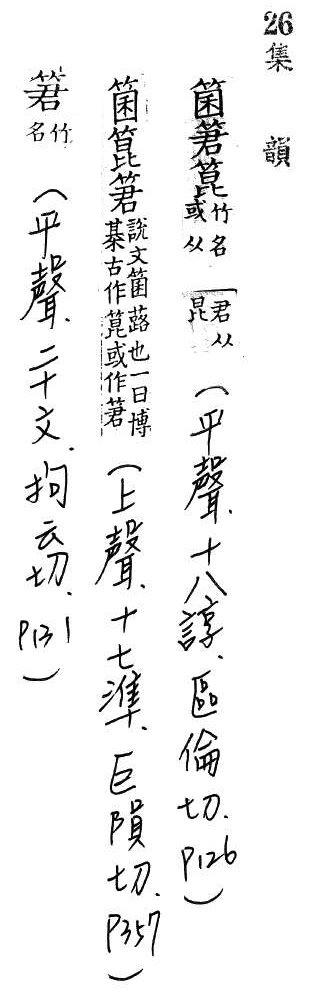 26 集韻
箘箬箟竹名或从君从昆（平聲、十八諄、區倫切、P126）
箘箟箬說文箘簬也一曰博棊古作箟或作箬（上聲、十七準、巨隕切、P357）
箬竹名（平聲、二十文、拘云切、P131）